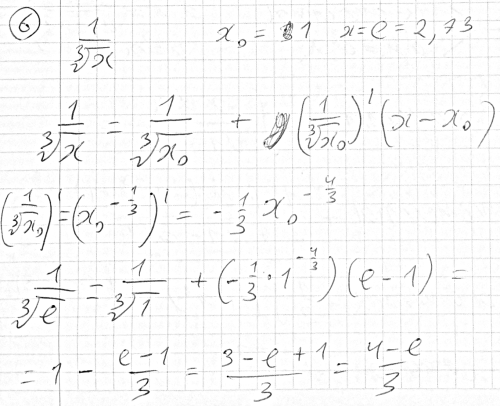 6 1/∛x x₀ = 1 x = e = 2,73
1/∛x = 1/∛x₀ + (1/∛x₀)' (x - x₀)
(1/∛x₀)' = (x₀^(-1/3))' = -1/3 x₀^(-4/3)
1/∛e = 1/∛1 + (-1/3 · 1^(-4/3)) (e - 1) =
= 1 - (e-1)/3 = (3-e+1)/3 = (4-e)/3